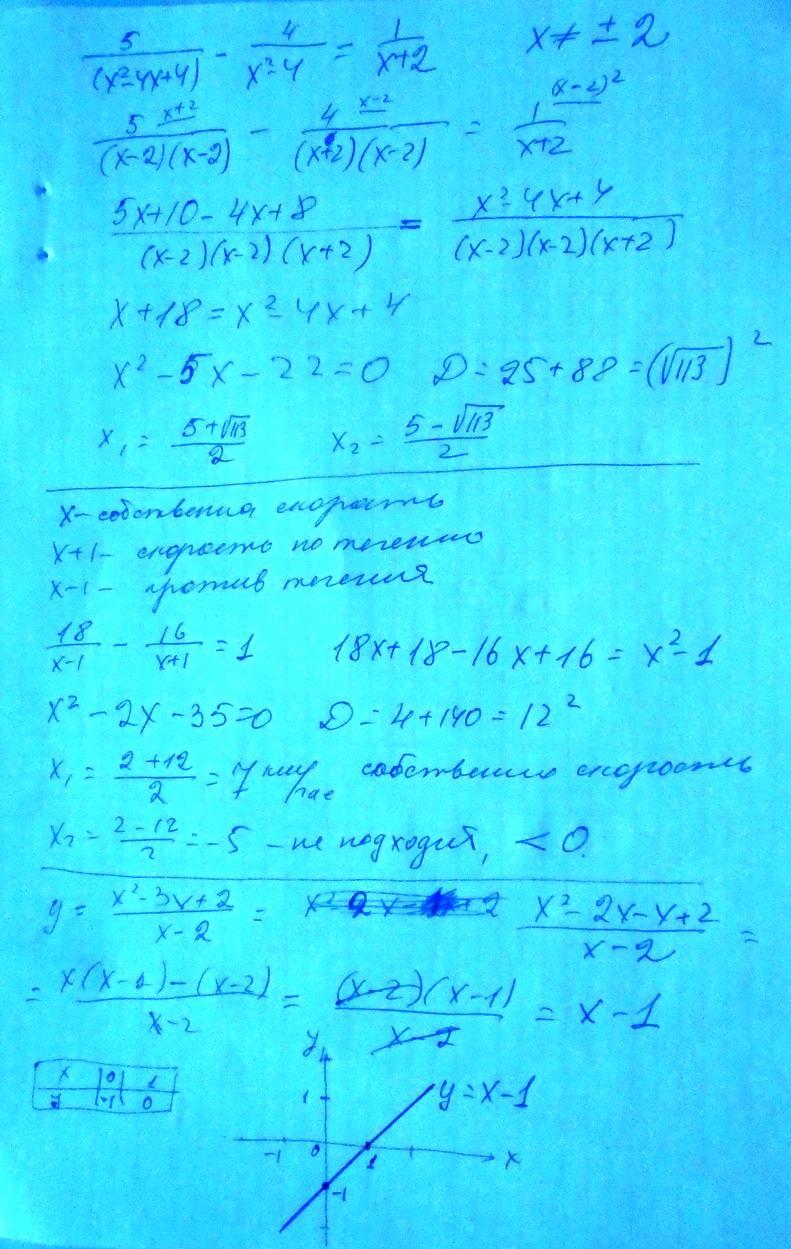 5/(x²-4x+4) - 4/(x²-4) = 1/(x+2) x ≠ ± 2
5 (x+2)/((x-2)(x-2)) - 4 (x-2)/((x+2)(x-2)) = 1 (x-2)²/(x+2)
(5x+10-4x+8)/((x-2)(x-2)(x+2)) = (x²-4x+4)/((x-2)(x-2)(x+2))
x+18 = x²-4x+4
x²-5x-22=0 D = 25+88 = (√113)²
x₁ = (5+√113)/2 x₂ = (5-√113)/2
x - собствення скорость
x+1 - скорость по течению
x-1 - против течения
18/(x-1) - 16/(x+1) = 1 18x+18-16x+16 = x²-1
x²-2x-35=0 D = 4+140 = 12²
x₁ = (2+12)/2 = 7 км/час собственно скорость
x₂ = (2-12)/2 = -5 - не подходит, < 0.
y = (x²-3x+2)/(x-2) = (x²-2x-x+2)/(x-2) =
= (x(x-2)-(x-2))/(x-2) = ((x-2)(x-1))/(x-2) = x-1
x 0 1
y -1 0
y
1
y = x-1
-1 0 1 x
-1